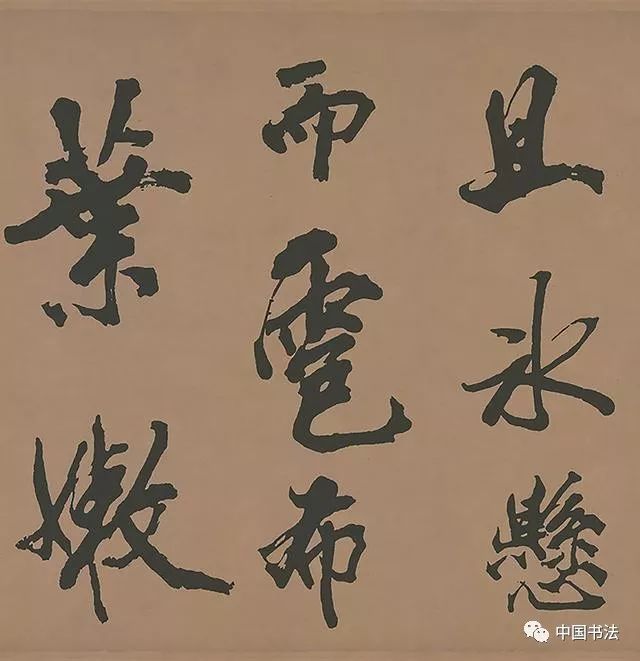 且冰懸
而雹布
葉嫩
中国书法